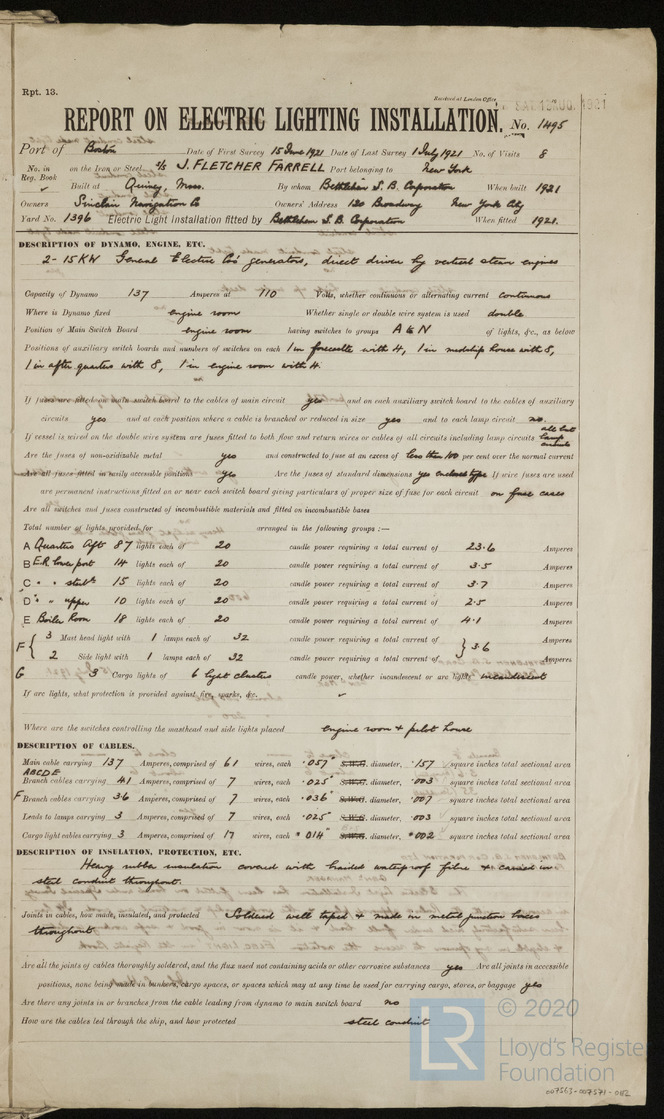 Rpt. 13.
Received at London Office
REPORT ON ELECTRIC LIGHTING INSTALLATION. No. 1495
Port of Boston Date of First Survey 15 June 1921 Date of Last Survey 1 July 1921 No. of Visits 8
No. in Reg. Book on the Iron or Steel S/S J. FLETCHER FARRELL Port belonging to New York
Built at Quincy, Mass. By whom Bethlehem S. B. Corporation When built 1921
Owners Sinclair Navigation Co Owners' Address 120 Broadway New York City
Yard No. 1396 Electric Light Installation fitted by Bethlehem S. B. Corporation When fitted 1921.
DESCRIPTION OF DYNAMO, ENGINE, ETC.
2 - 15 KW General Electric Co's generators, direct driven by vertical steam engines
Capacity of Dynamo 137 Amperes at 110 Volts, whether continuous or alternating current continuous
Where is Dynamo fixed engine room Whether single or double wire system is used double
Position of Main Switch Board engine room having switches to groups A to N of lights, &c., as below
Positions of auxiliary switch boards and numbers of switches on each 1 in forecastle with 4, 1 in midship house with 8,
1 in after quarters with 8, 1 in engine room with 4.
If fuses are fitted on main switch board to the cables of main circuit yes and on each auxiliary switch board to the cables of auxiliary
circuits yes and at each position where a cable is branched or reduced in size yes and to each lamp circuit no
If vessel is wired on the double wire system are fuses fitted to both flow and return wires or cables of all circuits including lamp circuits all but lamp circuits
Are the fuses of non-oxidizable metal yes and constructed to fuse at an excess of less than 100 per cent over the normal current
Are all fuses fitted in easily accessible positions yes Are the fuses of standard dimensions yes enclosed type If wire fuses are used
are permanent instructions fitted on or near each switch board giving particulars of proper size of fuse for each circuit on fuse cases
Are all switches and fuses constructed of incombustible materials and fitted on incombustible bases
Total number of lights provided for arranged in the following groups :—
A Quarters Aft 87 lights each of 20 candle power requiring a total current of 23.6 Amperes
B E.R. lower port 14 lights each of 20 candle power requiring a total current of 3.5 Amperes
C " " stbd 15 lights each of 20 candle power requiring a total current of 3.7 Amperes
D " " upper 10 lights each of 20 candle power requiring a total current of 2.5 Amperes
E Boiler Room 18 lights each of 20 candle power requiring a total current of 4.1 Amperes
F { 3 Mast head light with 1 lamps each of 32 candle power requiring a total current of } 3.6 Amperes
2 Side light with 1 lamps each of 32 candle power requiring a total current of Amperes
G 3 Cargo lights of 6 light clusters candle power, whether incandescent or arc lights incandescent
If arc lights, what protection is provided against fire, sparks, &c.
Where are the switches controlling the masthead and side lights placed engine room & pilot house
DESCRIPTION OF CABLES.
Main cable carrying 137 Amperes, comprised of 61 wires, each .057" S.W.G. diameter, .157 square inches total sectional area
ABCDE
Branch cables carrying 41 Amperes, comprised of 7 wires, each .025" S.W.G. diameter, .003 square inches total sectional area
F Branch cables carrying 36 Amperes, comprised of 7 wires, each .036" S.W.G. diameter, .007 square inches total sectional area
Leads to lamps carrying 3 Amperes, comprised of 7 wires, each .025" S.W.G. diameter, .003 square inches total sectional area
Cargo light cables carrying 3 Amperes, comprised of 17 wires, each .014" S.W.G. diameter, .002 square inches total sectional area
DESCRIPTION OF INSULATION, PROTECTION, ETC.
Heavy rubber insulation covered with braided waterproof fibre & carried in
steel conduit throughout.
Joints in cables, how made, insulated, and protected Soldered well taped & made on metal junction boxes
throughout
Are all the joints of cables thoroughly soldered, and the flux used not containing acids or other corrosive substances yes Are all joints in accessible
positions, none being made in bunkers, cargo spaces, or spaces which may at any time be used for carrying cargo, stores, or baggage yes
Are there any joints in or branches from the cable leading from dynamo to main switch board no
How are the cables led through the ship, and how protected steel conduit
© 2020
LR Lloyd's Register
Foundation
007363-007371-0112